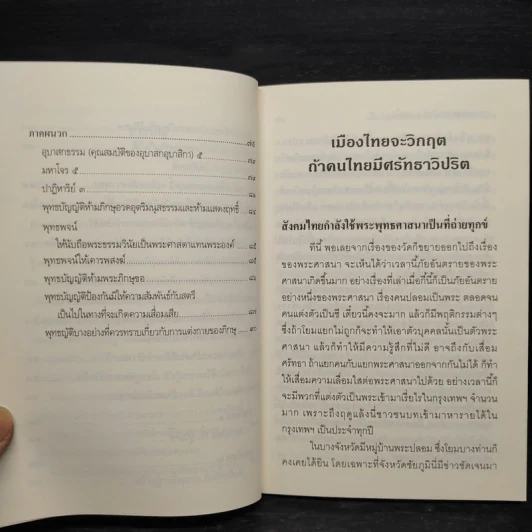 ภาคผนวก ........ ๗๕
อุบาสกธรรม (คุณสมบัติของอุบาสกอุบาสิกา) ๕ ........ ๗๙
มหาโจร ๕ ........ ๗๙
ปาฏิหาริย์ ๓ ........ ๘๑
พุทธบัญญัติห้ามภิกษุอวดอุตริมนุสธรรมและห้ามแสดงฤทธิ์
พุทธพจน์
ให้นับถือพระธรรมวินัยเป็นพระศาสดาแทนพระองค์
พุทธพจน์ให้เคารพสงฆ์
พุทธบัญญัติห้ามพระภิกษุขอ
พุทธบัญญัติป้องกันมิให้ความสัมพันธ์กับสตรี
เป็นไปในทางที่จะเกิดความเสื่อมเสีย
พุทธบัญญัติบางอย่างที่ควรทราบเกี่ยวกับการแต่งกายของภิกษุ
เมืองไทยจะวิกฤต
ถ้าคนไทยมีศรัทธาวิปริต
สังคมไทยกำลังใช้พระพุทธศาสนาเป็นที่ถ่ายทุกข์
ทีนี้ พอเลยจากเรื่องของวัดก็ขยายออกไปถึงเรื่อง
ของพระศาสนา จะเห็นได้ว่าเวลานี้ภัยอันตรายของพระ
ศาสนาเกิดขึ้นมาก อย่างเรื่องที่เล่าเมื่อกี้นี้ก็เป็นภัยอันตราย
อย่างหนึ่งของพระศาสนา เรื่องคนปลอมเป็นพระ ตลอดจน
คนแต่งตัวเป็นชี เดี๋ยวนี้คงจะมาก แล้วก็มีพฤติกรรมต่างๆ
ซึ่งถ้าโยมแยกไม่ถูกก็จะทำให้เอาตัวบุคคลนั้นเป็นตัวพระ
ศาสนา แล้วก็ทำให้มีความรู้สึกที่ไม่ดี อาจถึงกับเสื่อม
ศรัทธา ถ้าแยกคนกับแยกพระศาสนาออกจากกันไม่ได้ ก็ทำ
ให้เสื่อมความเลื่อมใสต่อพระศาสนาไปด้วย อย่างเวลานี้ก็
จะมีพวกที่แต่งตัวเป็นพระเข้ามาเรี่ยไรในกรุงเทพฯ จำนวน
มาก เพราะถึงฤดูแล้งนี่ชาวชนบทเข้ามาหารายได้ใน
กรุงเทพฯ เป็นประจำทุกปี
ในบางจังหวัดมีหมู่บ้านพระปลอม ซึ่งโยมบางท่านก็
คงเคยได้ยิน โดยเฉพาะที่จังหวัดชัยภูมินี่มีข่าวชัดเจนมา